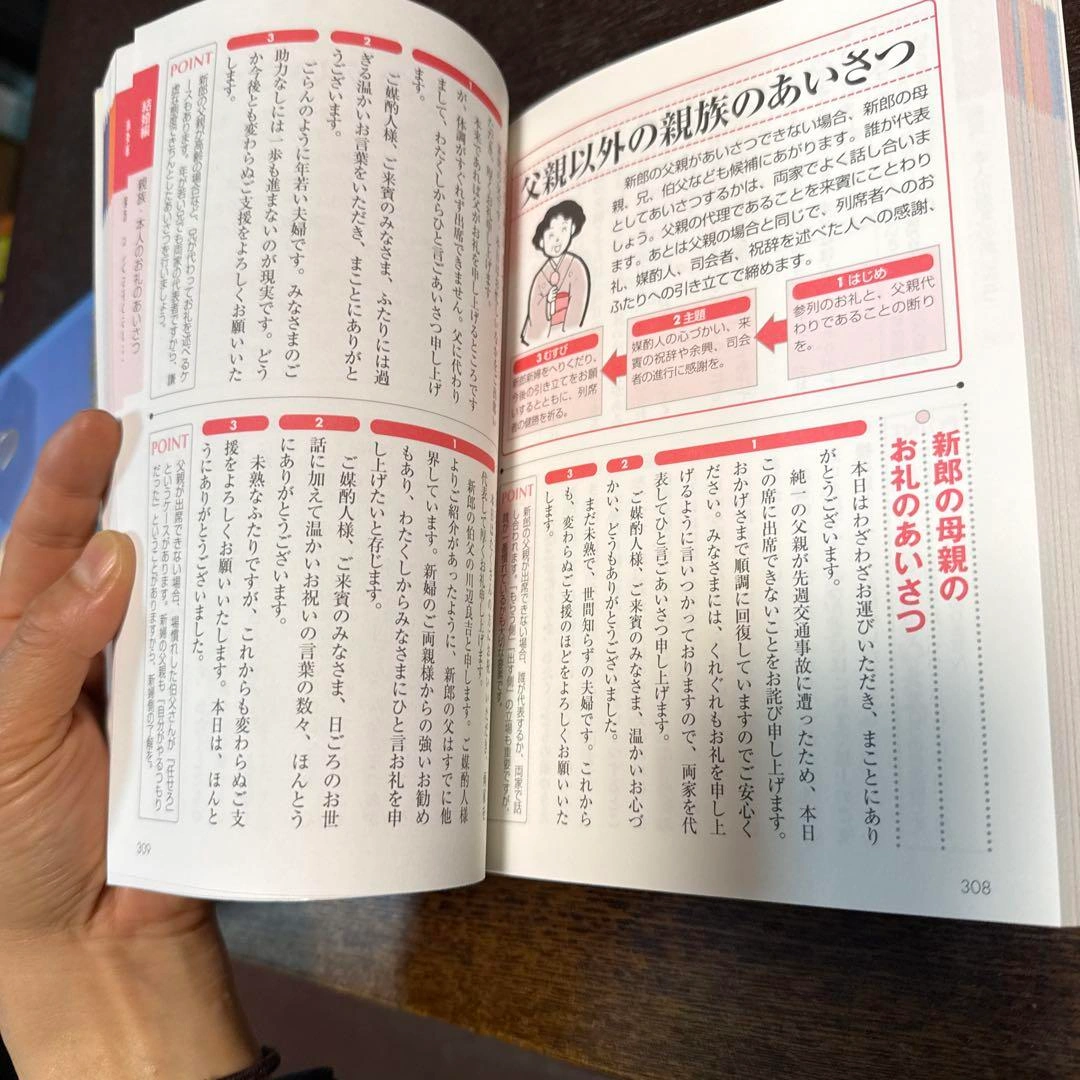 父親以外の親族のあいさつ
新郎の父親があいさつできない場合、新郎の母
親、兄、伯父なども候補にあがります。誰が代表
としてあいさつするかは、両家でよく話し合いま
しょう。父親の代理であることを来賓にことわり
ます。あとは父親の場合と同じで、列席者へのお
礼、媒酌人、司会者、祝辞を述べた人への感謝、
ふたりへの引き立てで締めます。
1 はじめ
参列のお礼と、父親代
わりであることの断り
を。
2 主題
媒酌人の心づかい、来
賓の祝辞や余興、司会
者の進行に感謝を。
3 むすび
新郎新婦をへりくだり、
今後の引き立てをお願
いするとともに、列席
者の健勝を祈る。
新郎の母親の
お礼のあいさつ
1
本日はわざわざお運びいただき、まことにあり
がとうございます。
純一の父親が先週交通事故に遭ったため、本日
この席に出席できないことをお詫び申し上げます。
おかげさまで順調に回復していますのでご安心く
ださい。みなさまには、くれぐれもお礼を申し上
げるように言いつかっておりますので、両家を代
表してひと言ごあいさつ申し上げます。
2
ご媒酌人様、ご来賓のみなさま、温かいお心づ
かい、どうもありがとうございました。
3
まだ未熟で、世間知らずの夫婦です。これから
も、変わらぬご支援のほどをよろしくお願いいた
します。
POINT
新郎の父親が出席できない場合、誰が代表するか、両家で話
し合われます。「もらう側」「出す側」の立場も重要ですが、
308
1
本来であれば父がお礼を申し上げるところです
が、体調がすぐれず出席できません。父に代わり
まして、わたくしからひと言ごあいさつ申し上げ
ます。
2
ご媒酌人様、ご来賓のみなさま、ふたりには過
ぎる温かいお言葉をいただき、まことにありがと
うございます。
3
ごらんのように年若い夫婦です。みなさまのご
助力なしには一歩も進まないのが現実です。どう
か今後とも変わらぬご支援をよろしくお願いいた
します。
POINT
新郎の父親が高齢の場合など、兄が代わってお礼を述べるケ
ースもあります。年が若い兄でも両家の代表者ですから、謙
虚な態度できちんとしたあいさつを行いましょう。
結婚編
親族・本人のお礼のあいさつ
1
代表して厚くお礼申し上げます。
新郎の伯父の川辺良吉と申します。ご媒酌人様
よりご紹介があったように、新郎の父はすでに他
界しています。新婦のご両親様からの強いお勧め
もあり、わたくしからみなさまにひと言お礼を申
し上げたいと存じます。
2
ご媒酌人様、ご来賓のみなさま、日ごろのお世
話に加えて温かいお祝いの言葉の数々、ほんとう
にありがとうございます。
3
未熟なふたりですが、これからも変わらぬご支
援をよろしくお願いいたします。本日は、ほんと
うにありがとうございました。
POINT
父親が出席できない場合、場慣れした伯父さんが「任せろ」
というケースがあります。新婦の父親も「自分がやるつもり
だった」ということがありますから、新婦側の了解を。
309